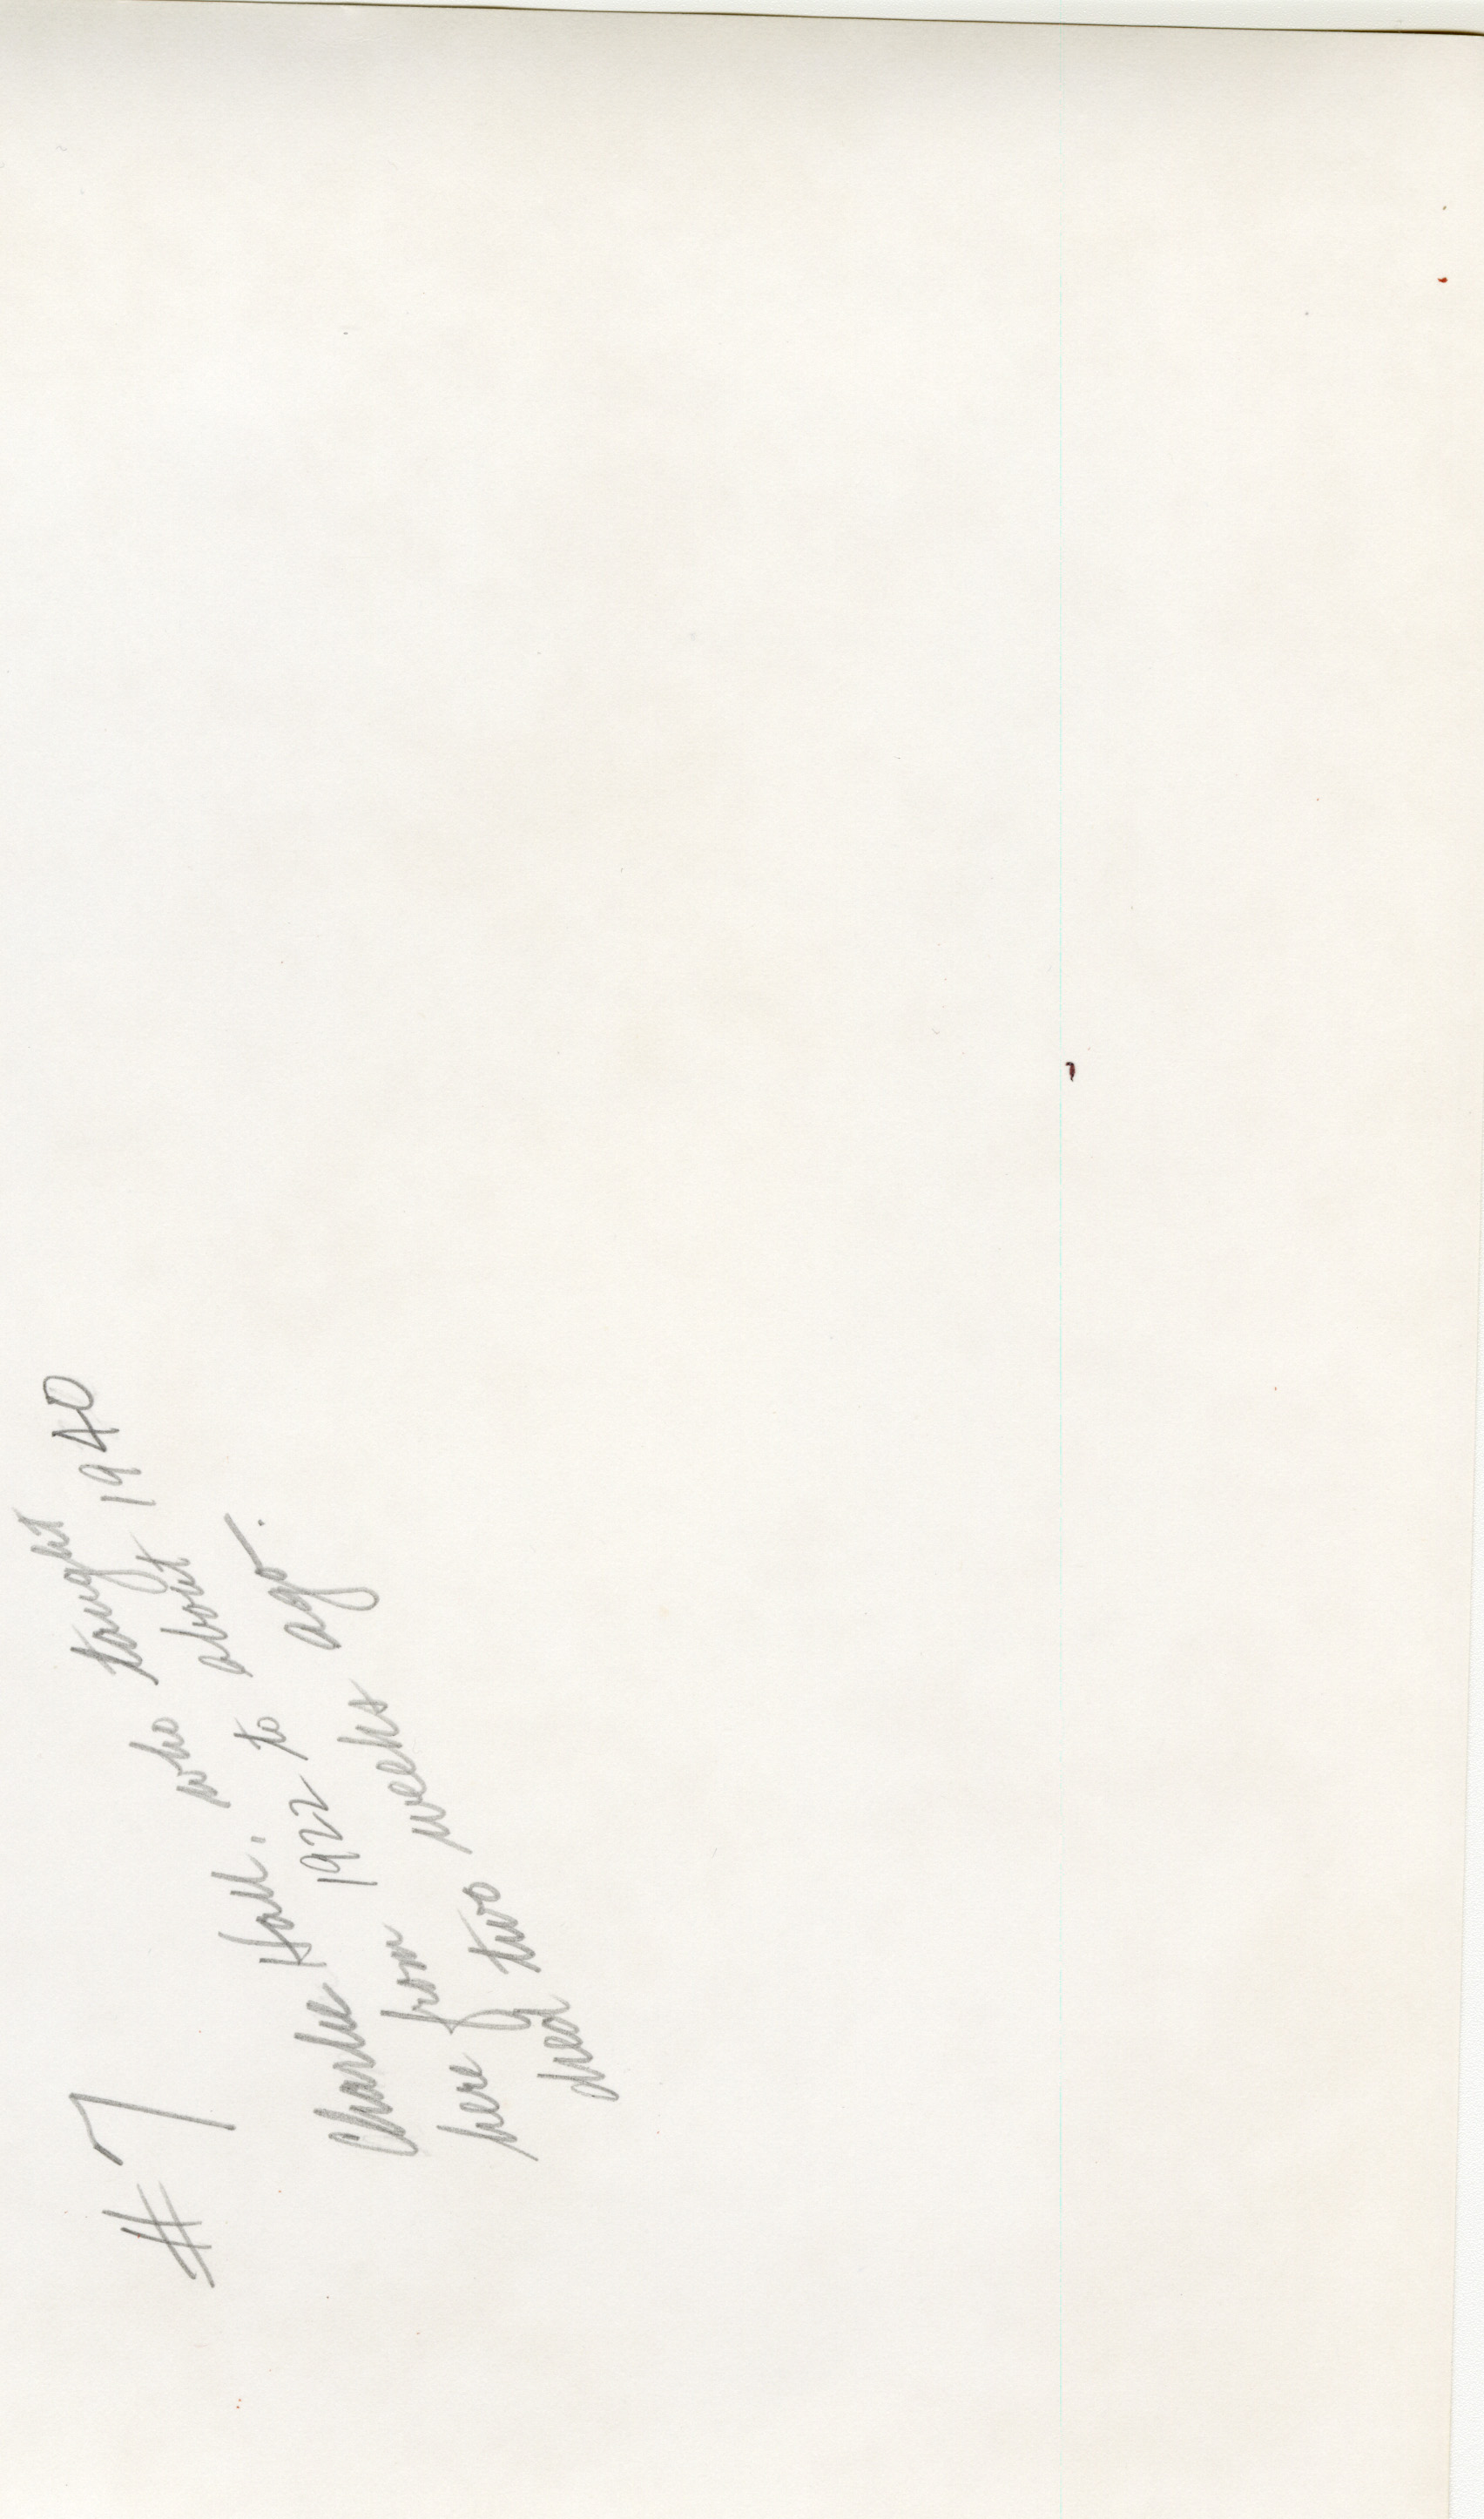 #7
Charlie Hall, who taught
here from 1922 to about 1940
died two weeks ago.